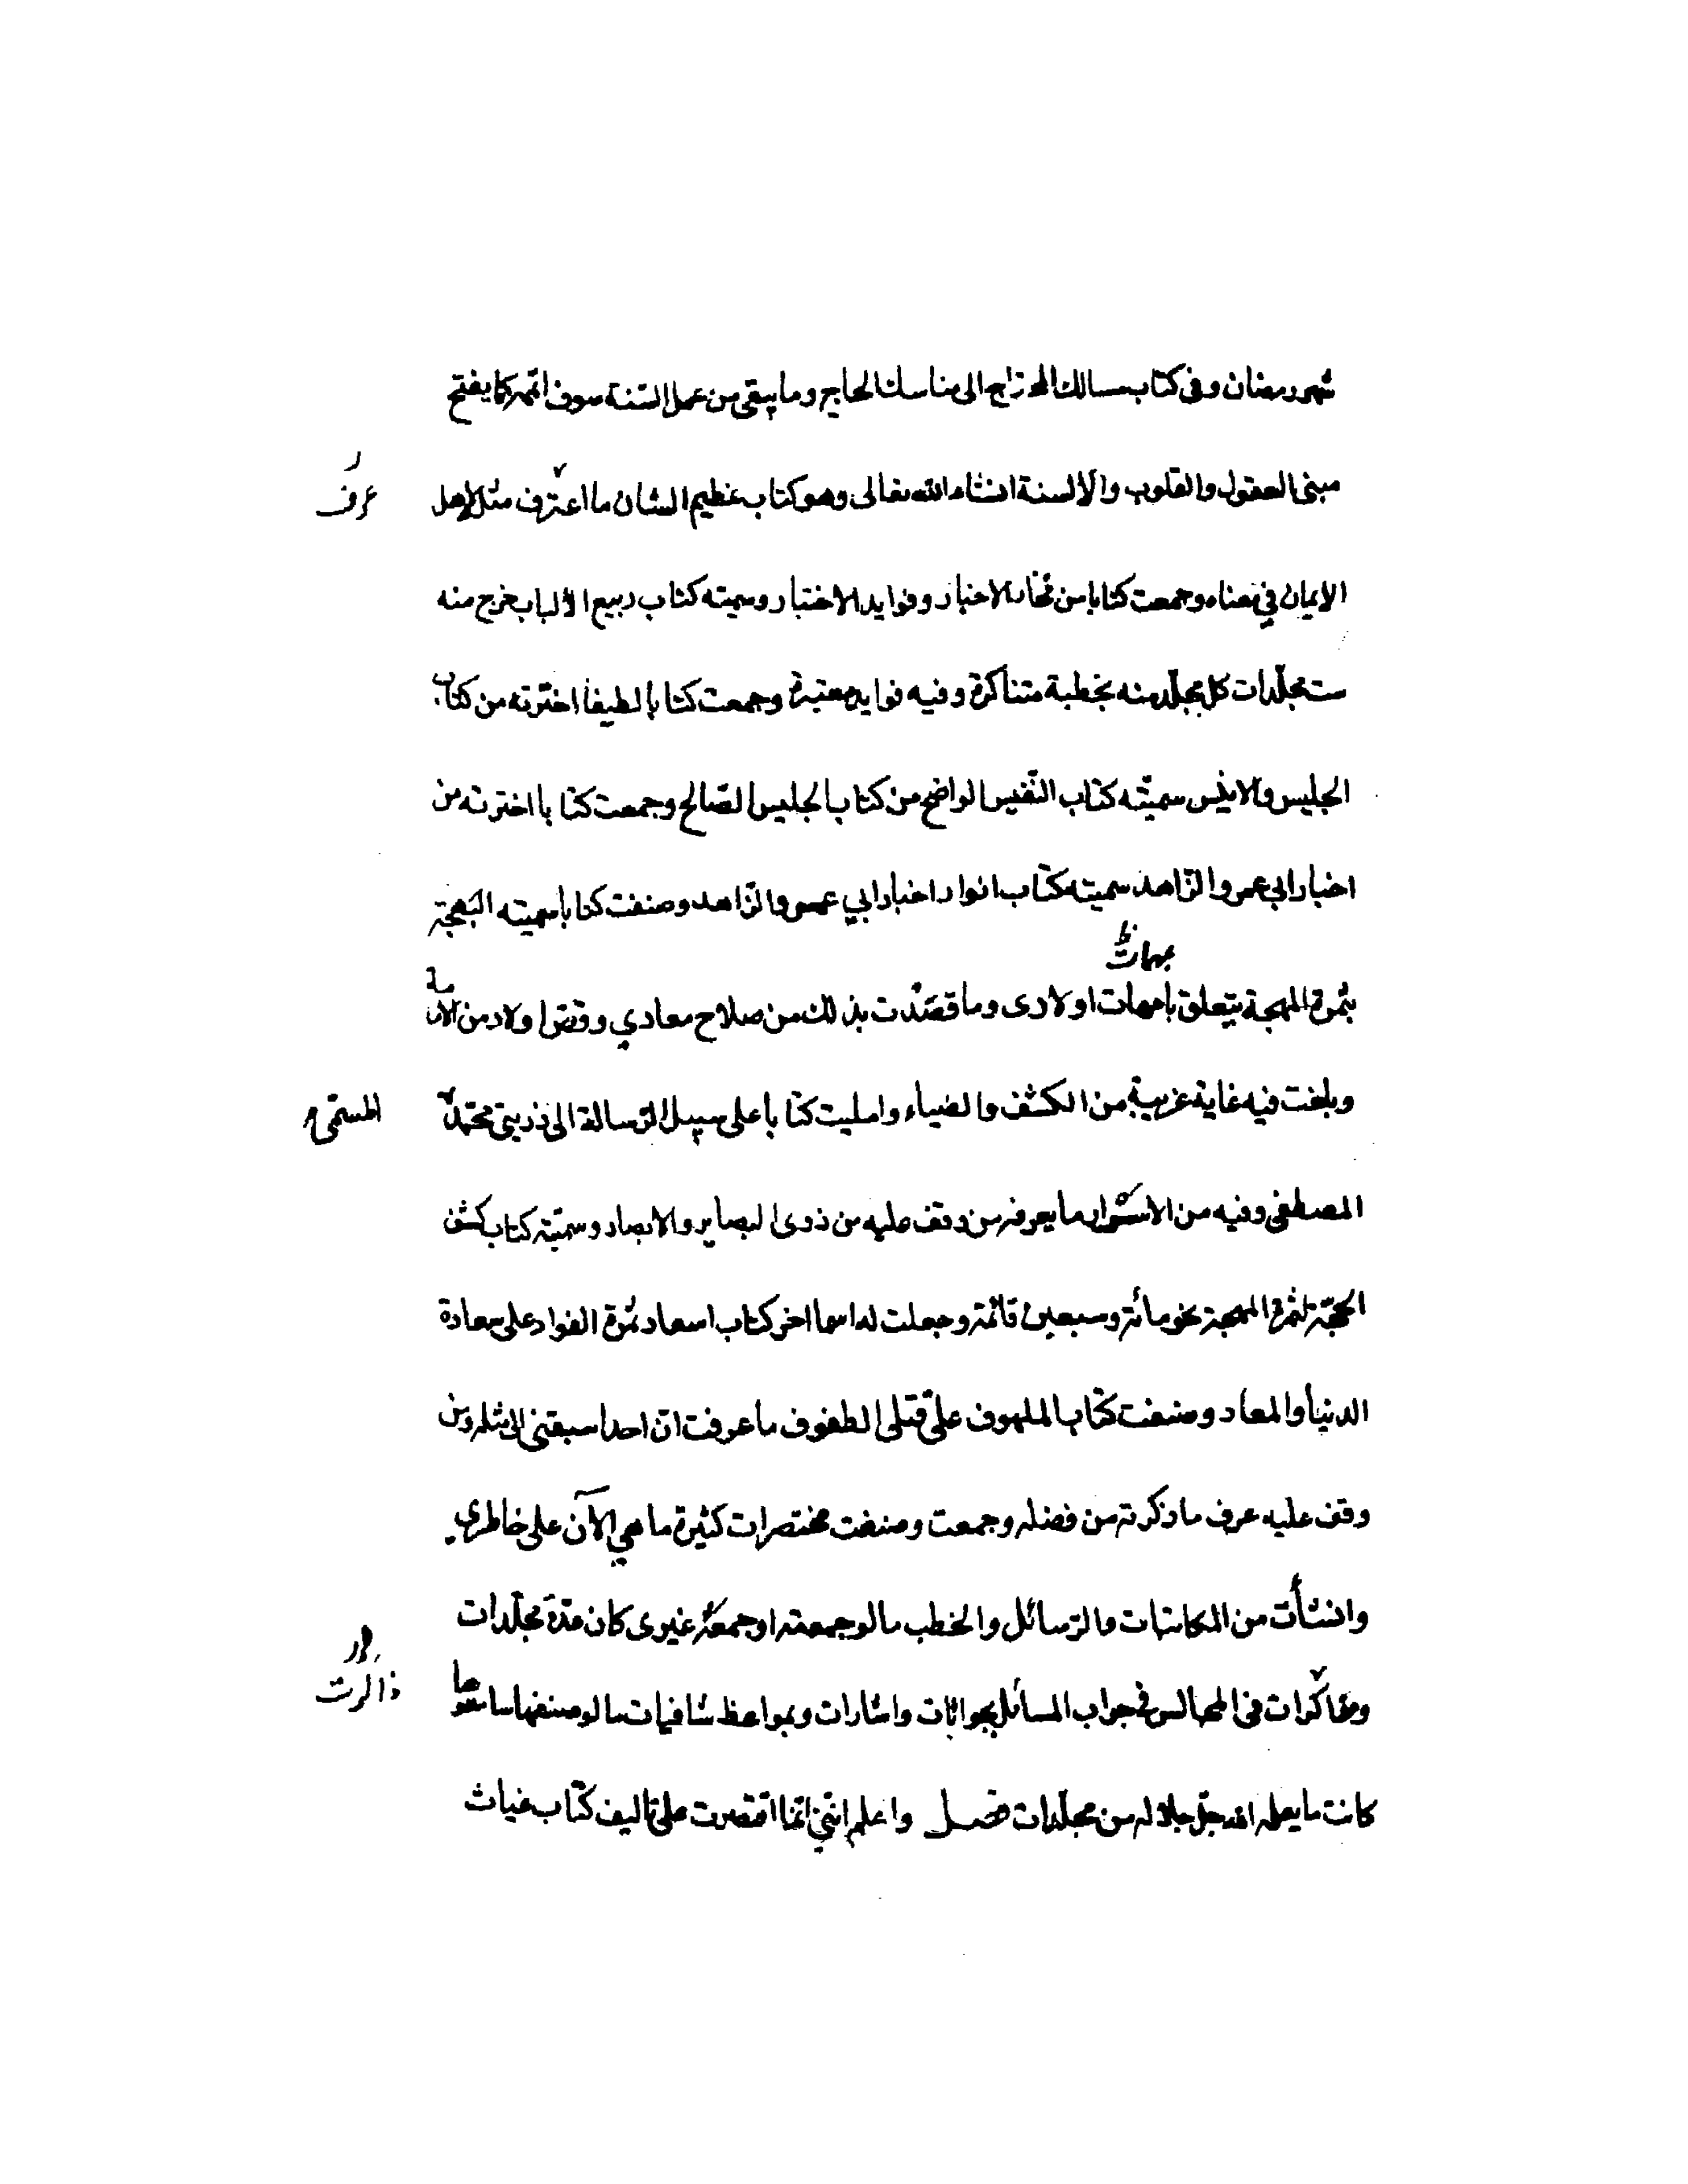 شهر رمضان وفى كتاب مسالك المزاج الى مناسك الحاج وما يبقى من عمل السّنة سوف اتممه كما يفتح
مبنى العقول والقلوب والالسنة انشاء الله تعالى وهو كتاب عظيم الشان ما اعترف مثله لاهل
عرف
الايمان في معناه وجمعت كتابا من الاخبار وفوايد الاختبار وسميته كتاب ربيع الألباب خرج منه
ست مجلّدات كل مجلّد منه بخطبة وفيه فوايد معتبرة وجمعت كتابا لطيفا اخترته من كتاب
الجليس والانيس سميّته كتاب النّفيس الواضح من كتاب الجليس الصّالح وجمعت كتابا اخترته من
اخبار ابي عمرو الزّاهد سميته كتاب انوار اخبار ابي عمرو الزّاهد وصنفت كتابا سميته البهجة
بثمرة المهجة يتعلق بامهات اولادى وما قصدت بذلك من صلاح معادي و اولاد من
وبلغت فيه غاية غريبة من الكشف والضياء وامليت كتابا على سبيل الرّسالة الى ذريتي محمّد
المسمّى م
المصطفى وفيه من الاسرار ما يعرفه من وقف عليه من ذوى البصاير والابصار وسميّته كتاب كشف
المحجّة لثمرة المهجة نحو مائة وسبعين قائمة وجعلت له اسما اخر كتاب اسعاد ثمرة الفواد على سعادة
الدنيا والمعاد وصنفت كتاب الملهوف على قتلى الطفوف ما عرفت انّ احدا سبقنى الى مثله ومن
وقف عليه عرف ما ذكرته من فضله وجمعت وصنفت مختصرات كثيرة ما هي الآن على خاطري
وانشأت من المكاتبات والرّسائل والخطب ما لو جمعته او جمعه غيرى كان عدّة مجلّدات
ومذاكرات فى المجالس في جواب المسائل بجوابات واشارات وبمواعظ شافيات ما لو صنفها سامعوها
ذاكرت
كانت ما يعلمه الله جلّ جلاله من مجلّدات فصل واعلم انّني انّما اقتصرت على تاليف كتاب غياث